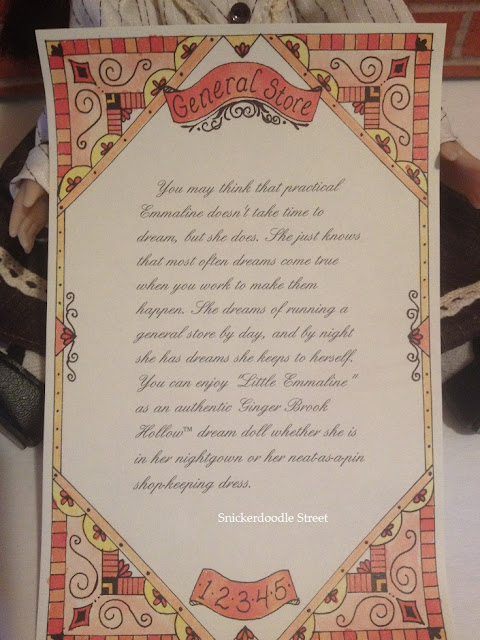 General Store
You may think that practical
Emmaline doesn't take time to
dream, but she does. She just knows
that most often dreams come true
when you work to make them
happen. She dreams of running a
general store by day, and by night
she has dreams she keeps to herself.
You can enjoy "Little Emmaline"
as an authentic Ginger Brook
Hollow™ dream doll whether she is
in her nightgown or her neat-as-a-pin
shop-keeping dress.
Snickerdoodle Street
·1·2·3·4·5·